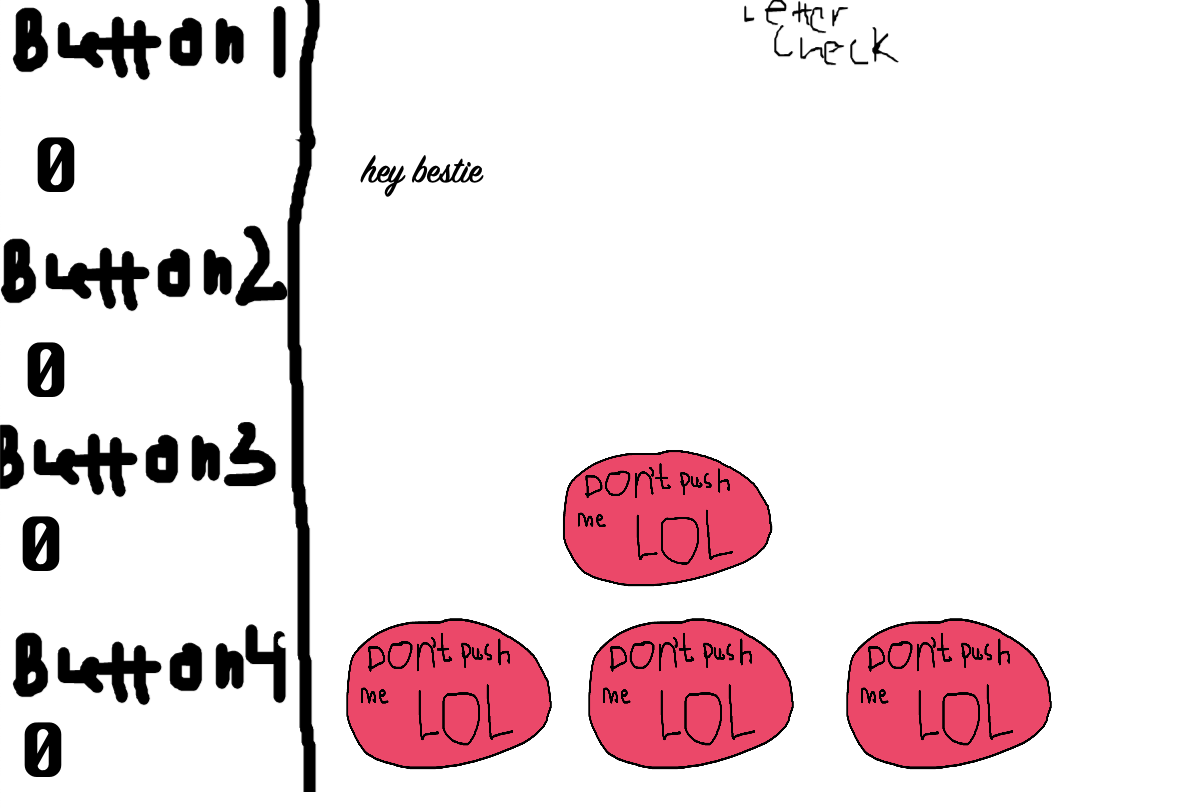 Button 1
0
Button2
0
Button3
0
Button4
0
Letter
Check
hey bestie
DON't push
me LOL
DON't push
me LOL
DON't push
me LOL
DON't push
me LOL